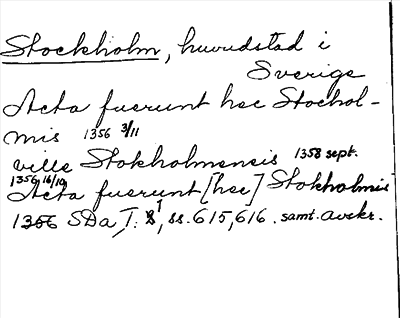 Stockholm, huvudstad i
Sverige
Acta fuerunt hec Stochol-
mis 1356 3/11
ville Stokholmensis 1358 sept.
1356 16/10
Acta fuerunt [hec] Stokholmis
1356 SDa, I: 1, ss. 615, 616. samt. avskr.